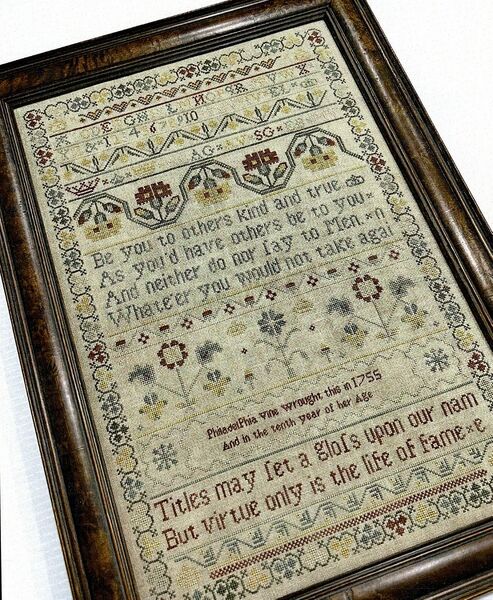 AG SG
Be you to others kind and true
As you'd have others be to you
And neither do nor ſay to Men. n
Whate'er you would not take agai
Philadelphia Vine wrought this in 1755
And in the tenth year of her Age
Titles may ſet a gloſs upon our nam
But virtue only is the life of fame e